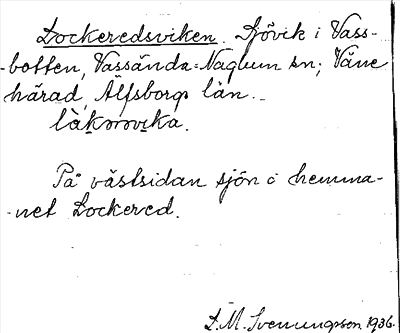 Lockeredsviken. Sjövik i Vass-
-botten, Vassända=Naglum sn; Väne
härad, Älfsborgs län.
På västsidan sjön å hemma-
-net Lockered.
L.M. Svenungsson 1936.